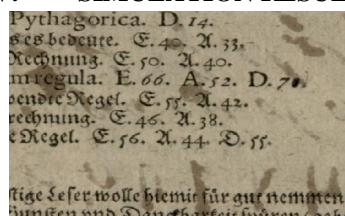 Pythagorica. D. 14.
s es bedeute. E. 40. A. 33.
Rechnung. E. 50. A. 40.
m regula. E. 66. A. 52. D. 70.
bendte Regel. E. 55. A. 42.
rechnung. E. 46. A. 38.
e Regel. E. 56. A. 44. D. 55.
stige Leser wolle hiemit für gut nemmen
Gunsten vnd Danckbarkeit spüren